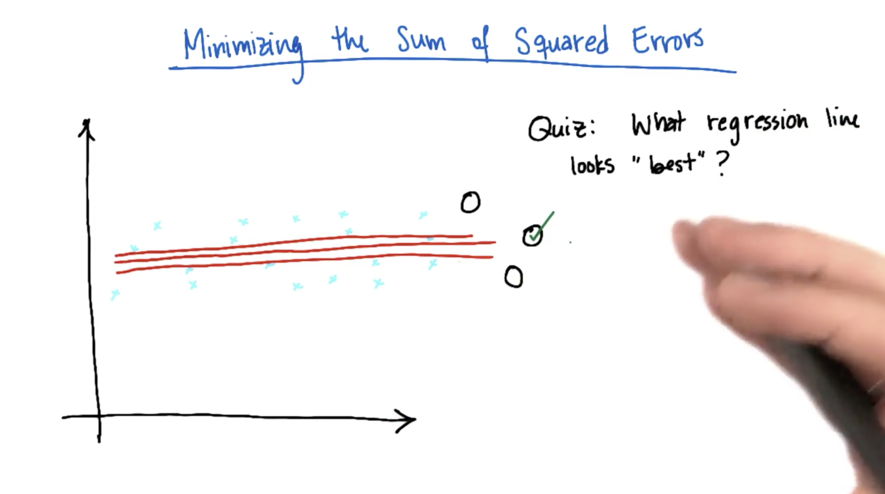 Minimizing the Sum of Squared Errors
Quiz: What regression line
looks "best"?